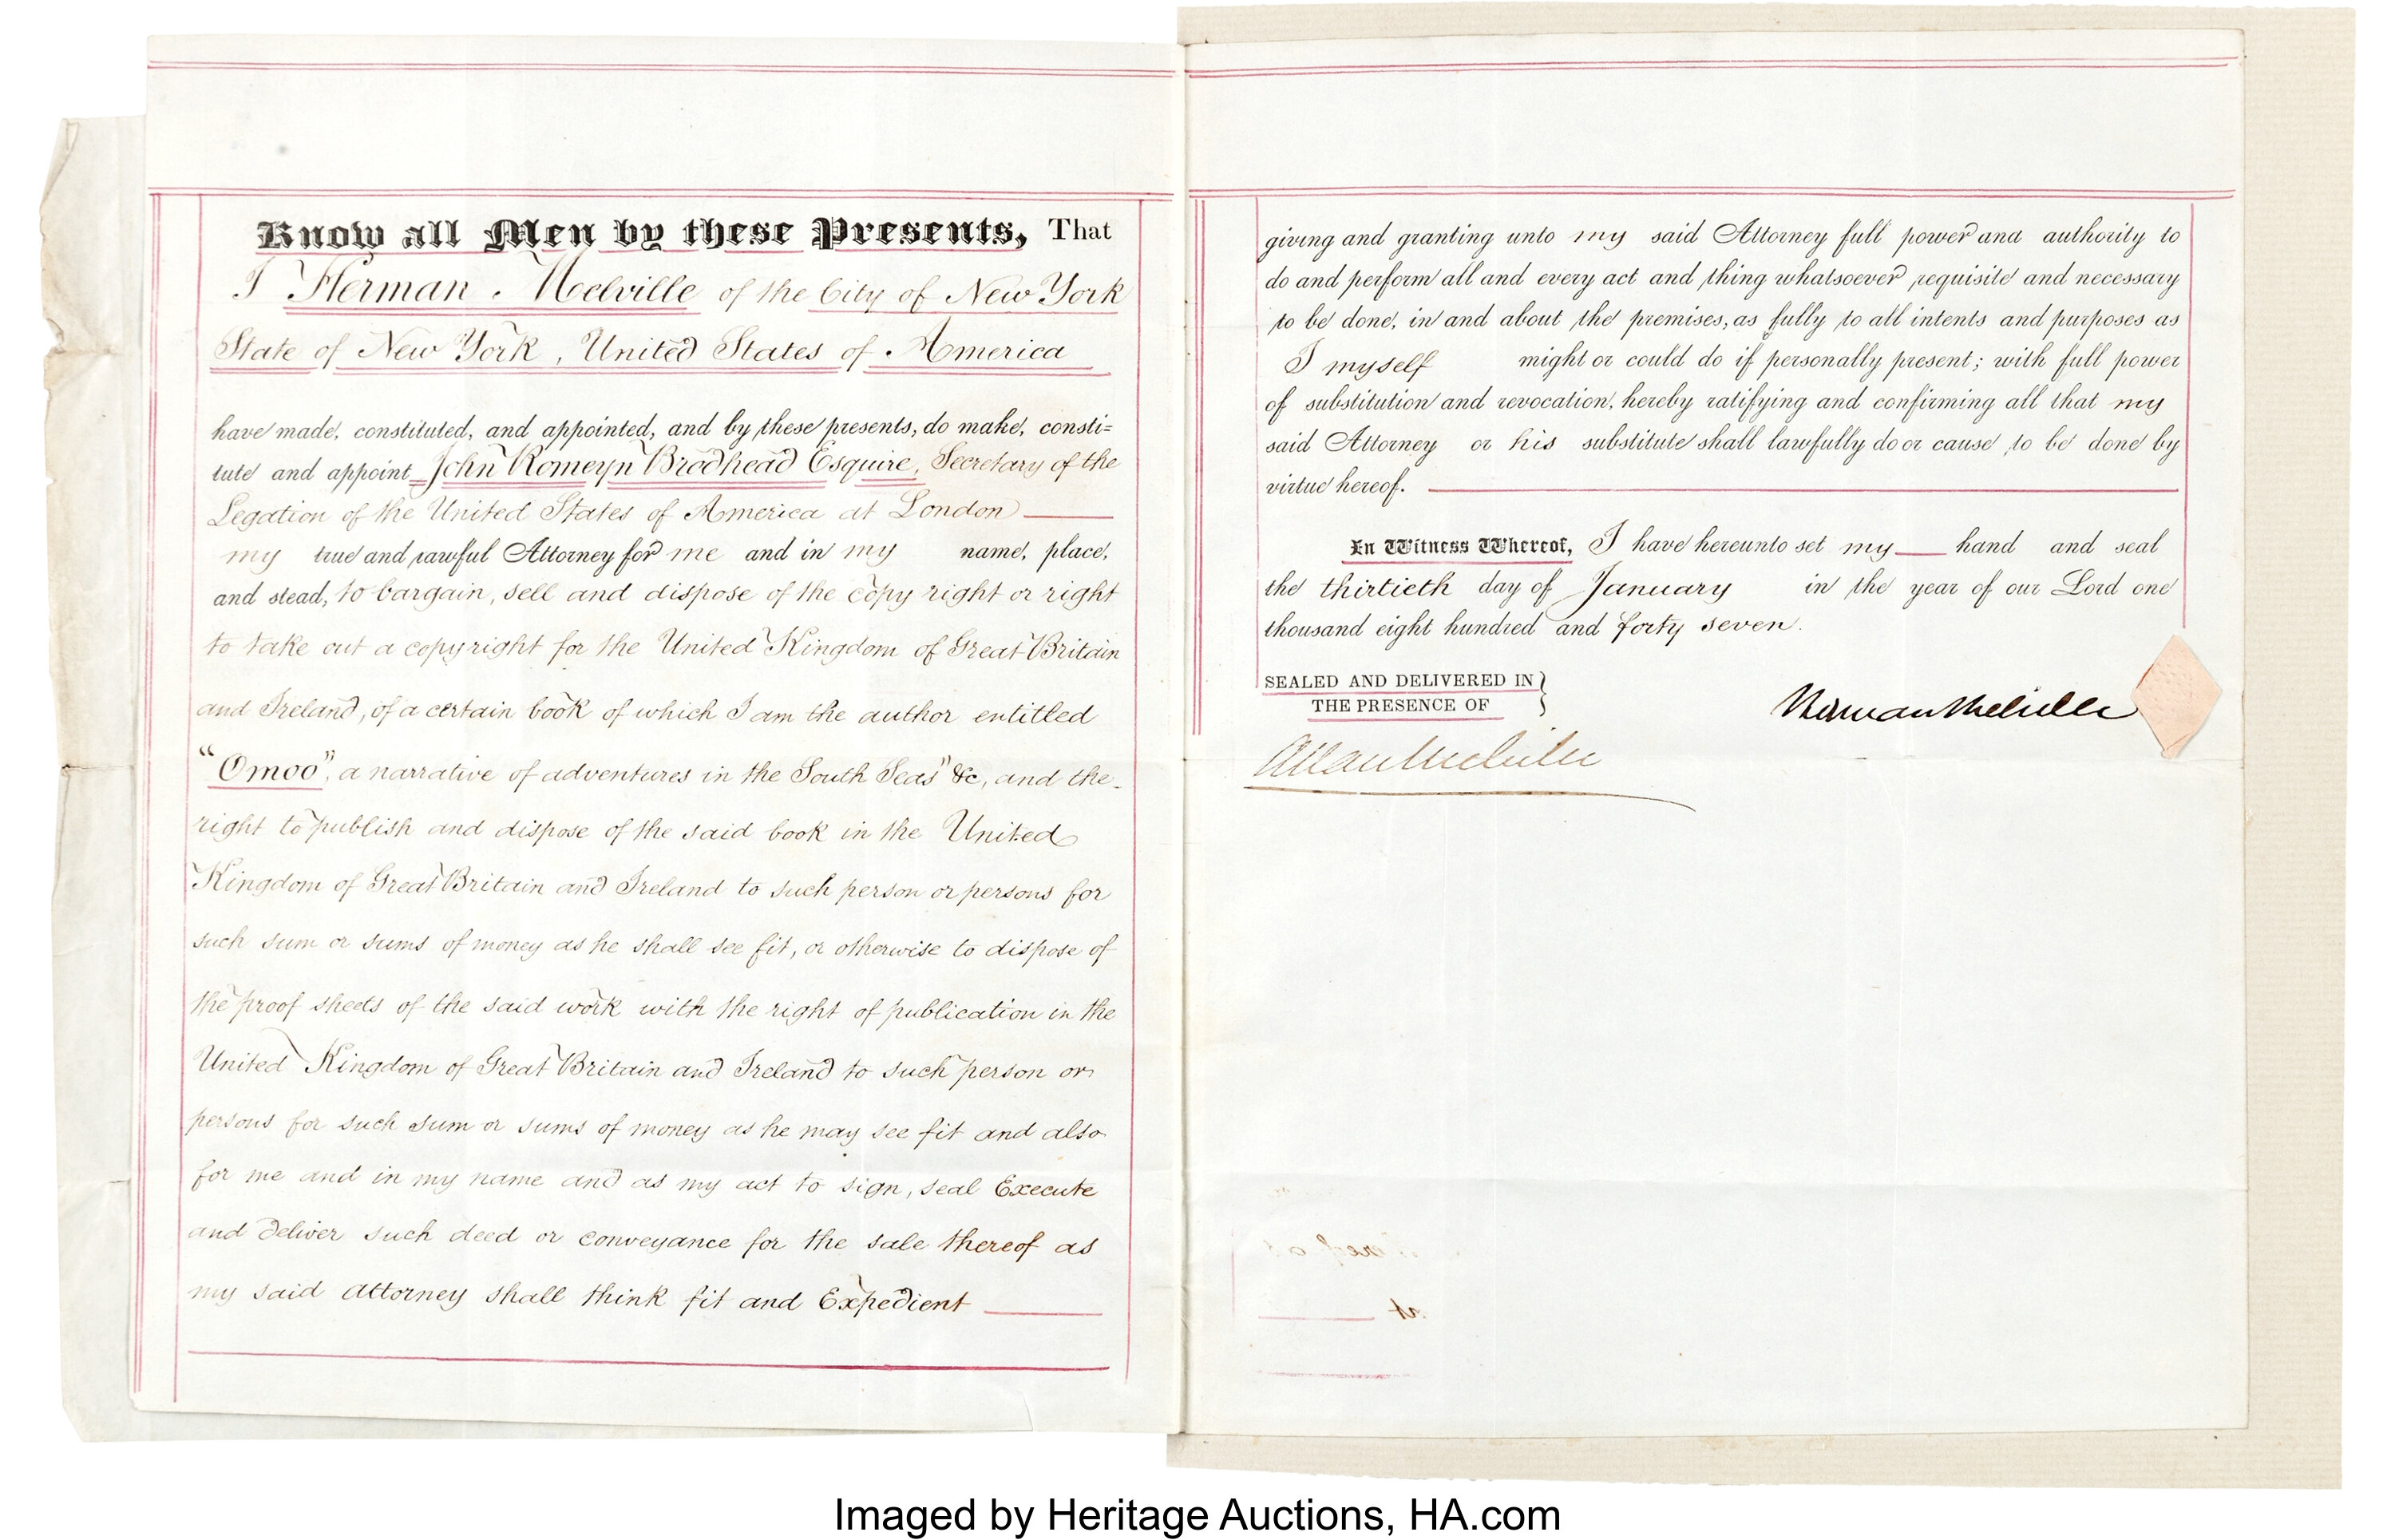 Know all Men by these Presents, That
I Herman Melville of the City of New York
State of New York, United States of America
have made, constituted, and appointed, and by these presents, do make, consti=
tute and appoint John Romeyn Brodhead Esquire, Secretary of the
Legation of the United States of America at London
my true and lawful Attorney for me and in my name, place,
and stead, to bargain, sell and dispose of the copy right or right
to take out a copyright for the United Kingdom of Great Britain
and Ireland, of a certain book of which I am the author entitled
"Omoo", a narrative of adventures in the South Seas" &c, and the
right to publish and dispose of the said book in the United
Kingdom of Great Britain and Ireland to such person or persons for
such sum or sums of money as he shall see fit, or otherwise to dispose of
the proof sheets of the said work with the right of publication in the
United Kingdom of Great Britain and Ireland to such person or
persons for such sum or sums of money as he may see fit and also
for me and in my name and as my act to sign, seal Execute
and deliver such deed or conveyance for the sale thereof as
my said attorney shall think fit and Expedient
giving and granting unto my said Attorney full power and authority to
do and perform all and every act and thing whatsoever requisite and necessary
to be done, in and about the premises, as fully to all intents and purposes as
I myself might or could do if personally present; with full power
of substitution and revocation, hereby ratifying and confirming all that my
said Attorney or his substitute shall lawfully do or cause to be done by
virtue hereof.
In Witness Whereof, I have hereunto set my hand and seal
the thirtieth day of January in the year of our Lord one
thousand eight hundred and forty seven.
SEALED AND DELIVERED IN }
THE PRESENCE OF
Herman Melville
Allan Melville
Imaged by Heritage Auctions, HA.com